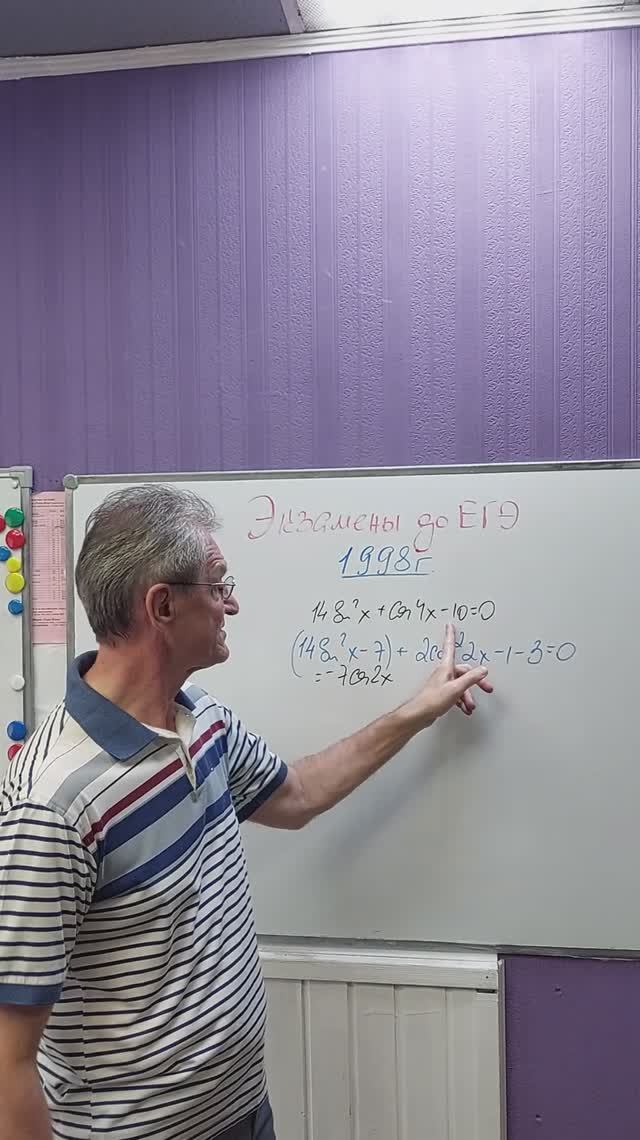 Экзамены до ЕГЭ
1998г
14 sin²x + cos4x - 10 = 0
(14 sin²x - 7) + 2cos²2x - 1 - 3 = 0
= -7cos2x